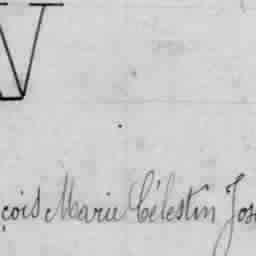 çois Marie Célestin Jos